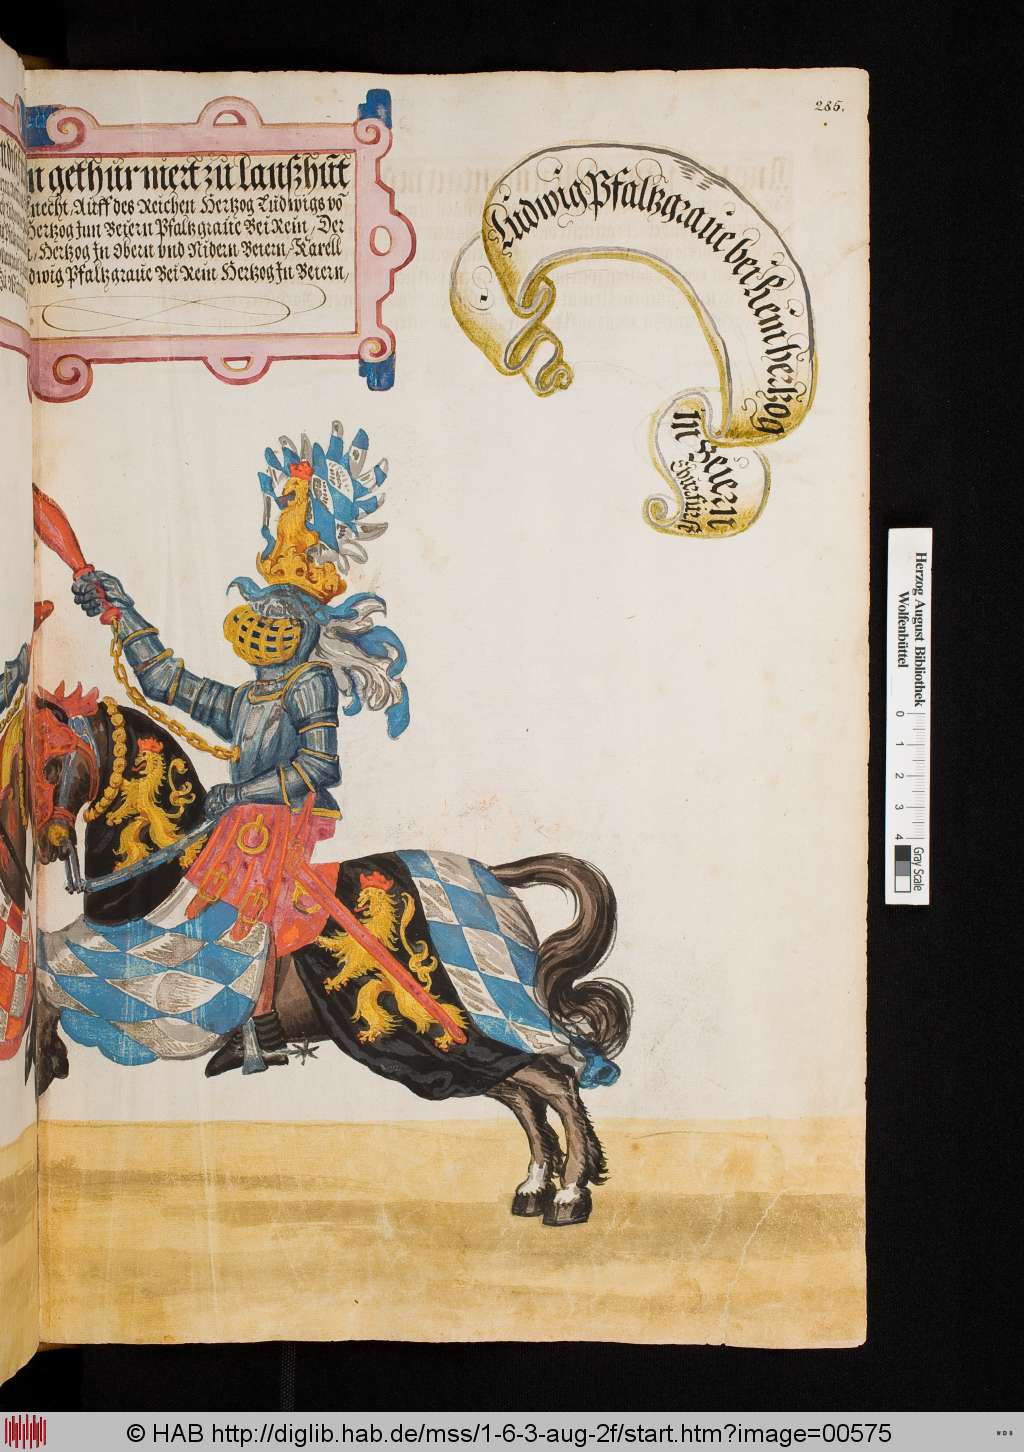 285.
n gethurniert zu lantzhut
knecht, Auff des Reichen Hertzog Ludwigs vō
Hertzog Inn Beiern Pfaltzgraue Bei Rein, Der
Hertzog In Obern vnd Nidern Beiern, Karell
Ludwig Pfaltzgraue Bei Rein Hertzog In Beiern,
Ludwig Pfaltzgraue bei Rein hertzog
in Beiern
Herzog August Bibliothek
Wolfenbüttel
0 1 2 3 4
Gray Scale
© HAB http://diglib.hab.de/mss/1-6-3-aug-2f/start.htm?image=00575
WDB